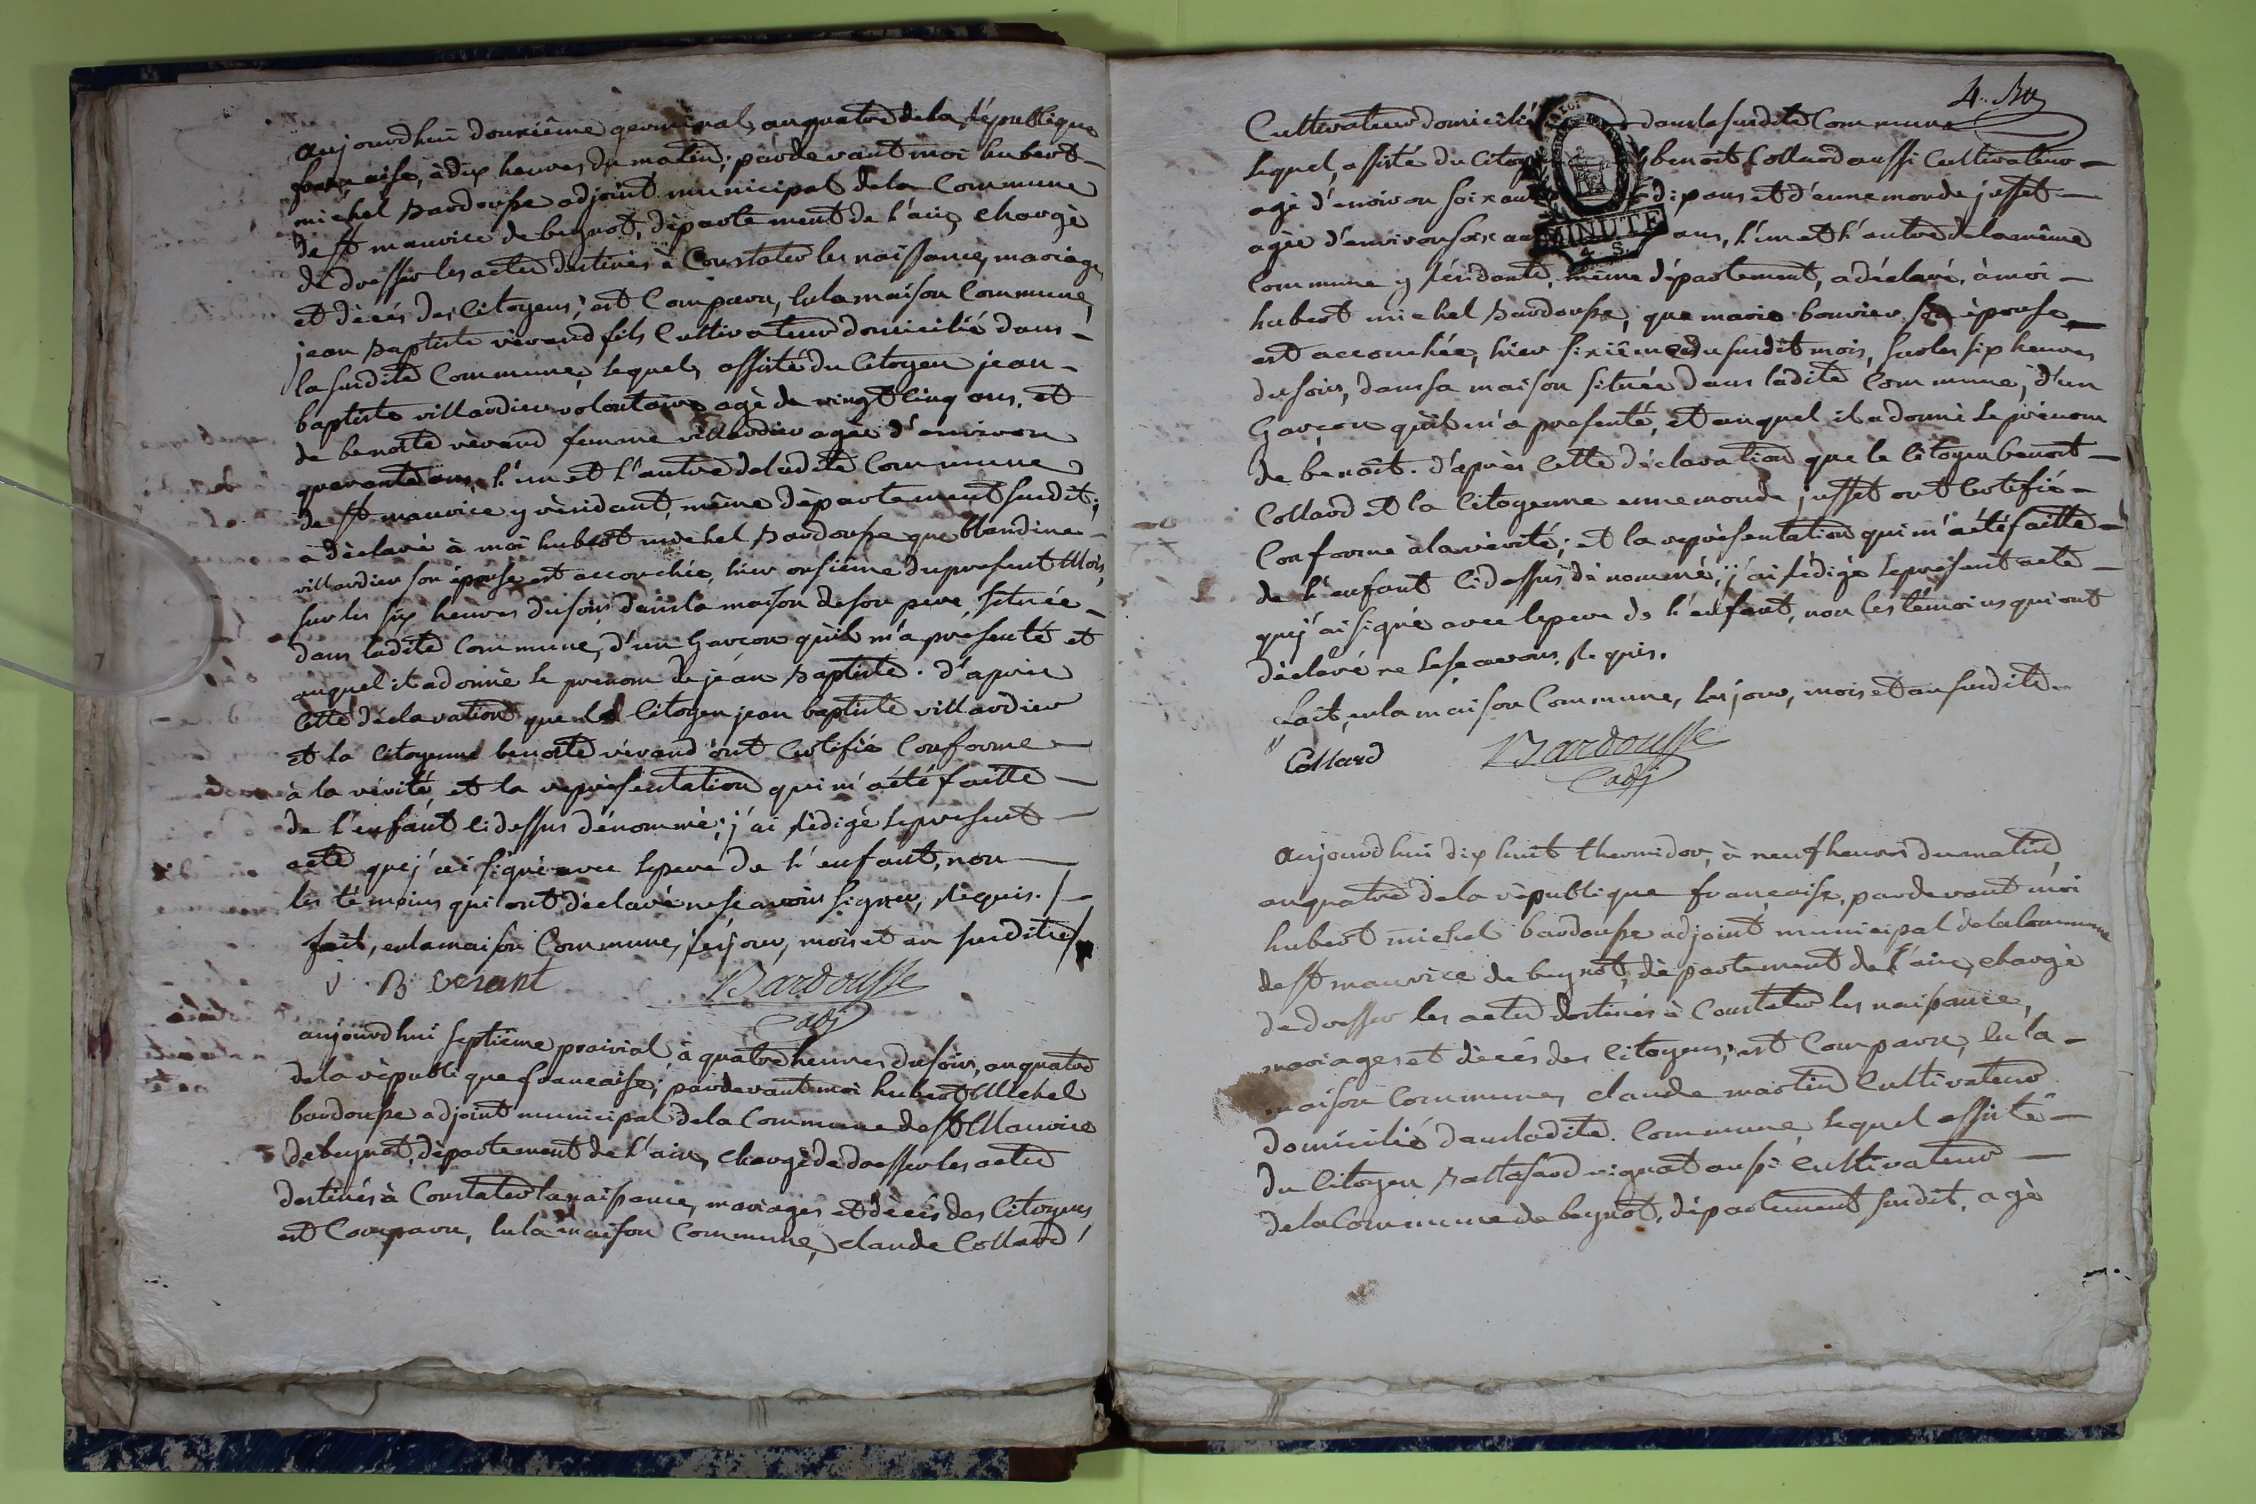 aujourdhui douxième germinal, anquatre dela république
française, à dix heures du matin; pardevant moi hubert
michel Bardousse adjoint municipal de la Commune
de st maurice de beynot, département de l'ain, chargé
de dresser les actes destinés à Constater les naissances, mariages
et décés des Citoyens; est Comparu, enla maison Commune,
jean Baptiste vérand fils Cultivateur domicilié dans
la susdite Commune, lequel, assisté du Citoyen jean
baptiste villardier volontaire agé de vingt cinq ans, et
de benoite vérand femme villardier agée d'environ
quarante ans, l'un et l'autre deladite Commune
de st maurice y résidant, même département susdit;
a déclaré à moi hubert michel Bardousse que blandine
villardier son épouse est accouchée, hier onsième dupresent Mois,
sur les six heures dusoir, dans la maison deson pere, située
dans ladite Commune, d'un Garcon qu'il m'a présenté et
auquel il adonné le prenom de jéan Baptiste. D'après
Cette déclaration que le Citoyen jean baptiste villardier
et la Citoyenne benoite vérand ont Certifié Conforme
à la vérité et la représentation qui m'aété faitte
de l'enfant cidessus dénommé; j'ai rédigé leprésent
acte quej'ai signé avec lepere de l'enfant, non
les témoins qui ont déclaré nesçavoir signer, requis. /
fait, enla maison Commune, lesjour, mois et an susdites /
j B verant Bardousse
adj
aujourdhui septième prairial à quatre heures dusoir, anquatre
dela république francaise; pardevant moi hubert Michel
bardousse adjoint municipal dela Commune de st Maurice
debeynot, département de l'ain, chargé de dresser les actes
destinés à Constater lanaissance, mariages et décés des Citoyens
est Comparu, enla maison Commune, claude Collard
4. Bu
Cultivateur domicilié dans la susdite Commune
lequel, assisté du Citoy benoit Collard aussi Cultivateur
agé d'environ soixan dix ans et d'ennemonde jusset
agée d'environ soix an ans, l'un et l'autre dela même
MINUTE
Commune y résidants, même département, a déclaré, à moi
hubert michel Bardousse, que marie bouvier sa épouse
est accouchée, hier sixième du susdit mois, sur les six heures
dusoir, dans sa maison située dans ladite Commune, d'un
Garcon qu'il m'a presenté, et auquel il a donné le prénom
de benoît. D'après Cette déclaration que le Citoyen benoit
Collard et la Citoyenne ennemonde jusset ont Certifié
Conforme à la vérité; et la représentation qui m'aété faitte
de l'enfant cidessus dénommé, j'ai rédigé leprésent acte
quej'ai signé avec lepere de l'enfant, non les témoins qui ont
déclaré ne lesçavoir, requis.
fait, enla maison Commune, lesjour, mois et an susdits
Collard Bardousse
adj
aujourdhui dix huit thermidor, à neufheures dumatin,
anquatre dela république française, pardevant moi
hubert michel bardousse adjoint municipal delaCommune
de st maurice de beynot, département de l'ain, chargé
de dresser les actes destinés à Constater les naissance,
mariages et décés des Citoyens; est Comparu, enla
maison Commune, claude martin Cultivateur
domicilié dans ladite Commune, lequel assisté
du Citoyen Baltasard vignat aussi Cultivateur
dela Commune de beynot, département susdit, agé